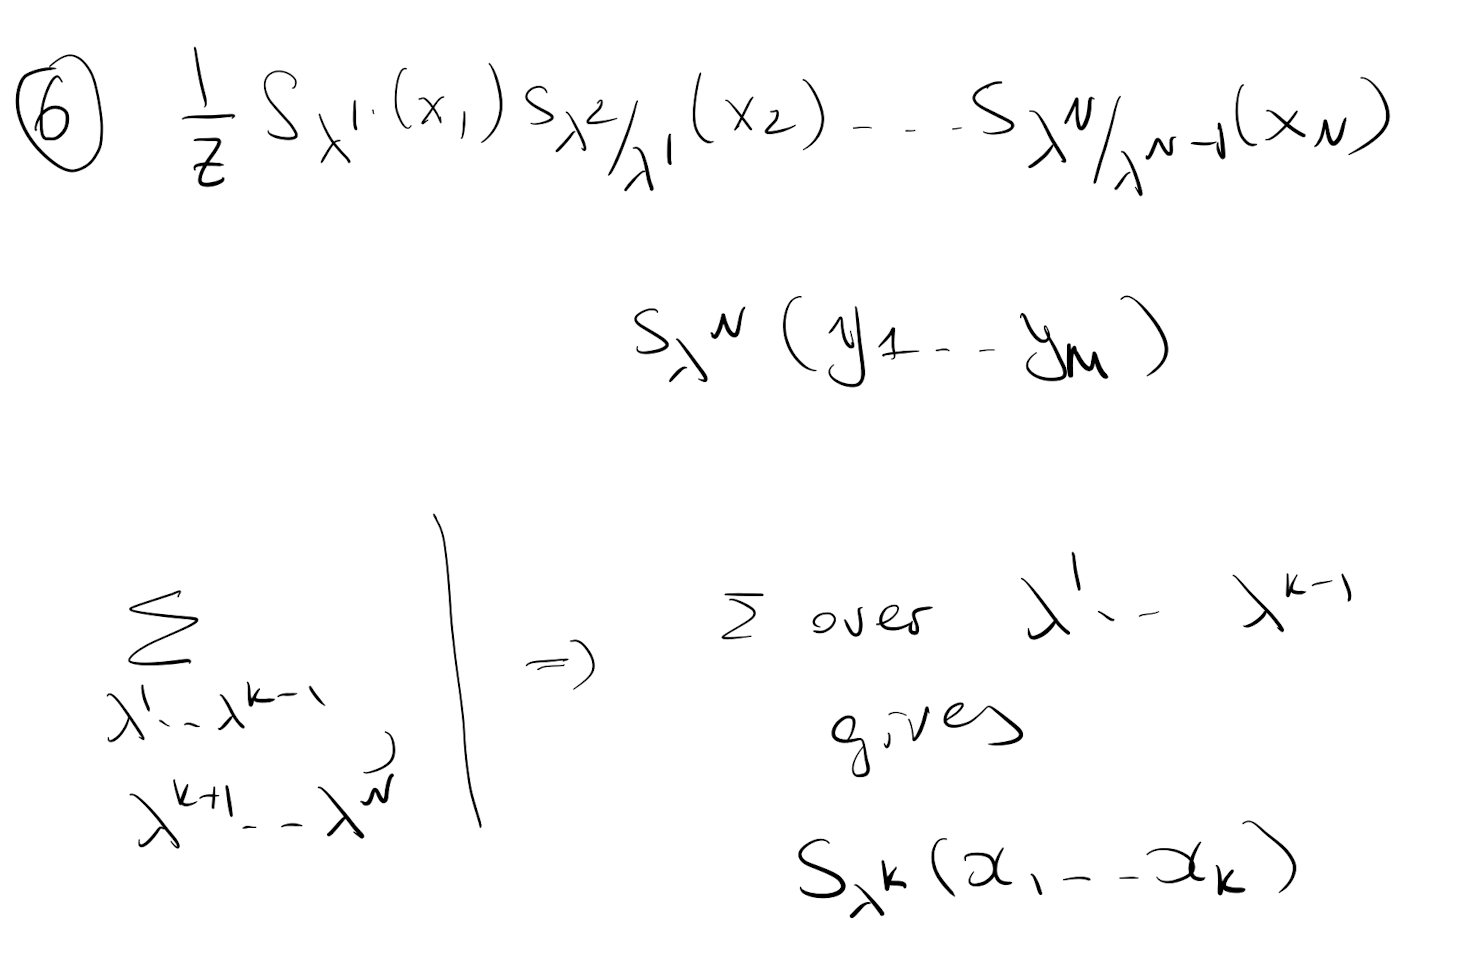 ⑥ 1/Z S_λ¹ (x₁) S_λ²/λ¹ (x₂) - - - S_λᴺ/λᴺ⁻¹ (x_N)
S_λᴺ (y₁ - - y_M)
∑ λ¹ - - λᵏ⁻¹, λᵏ⁺¹ - - λᴺ | ⇒ Σ over λ¹ - - λᵏ⁻¹
gives
S_λᵏ (x₁ - - x_k)